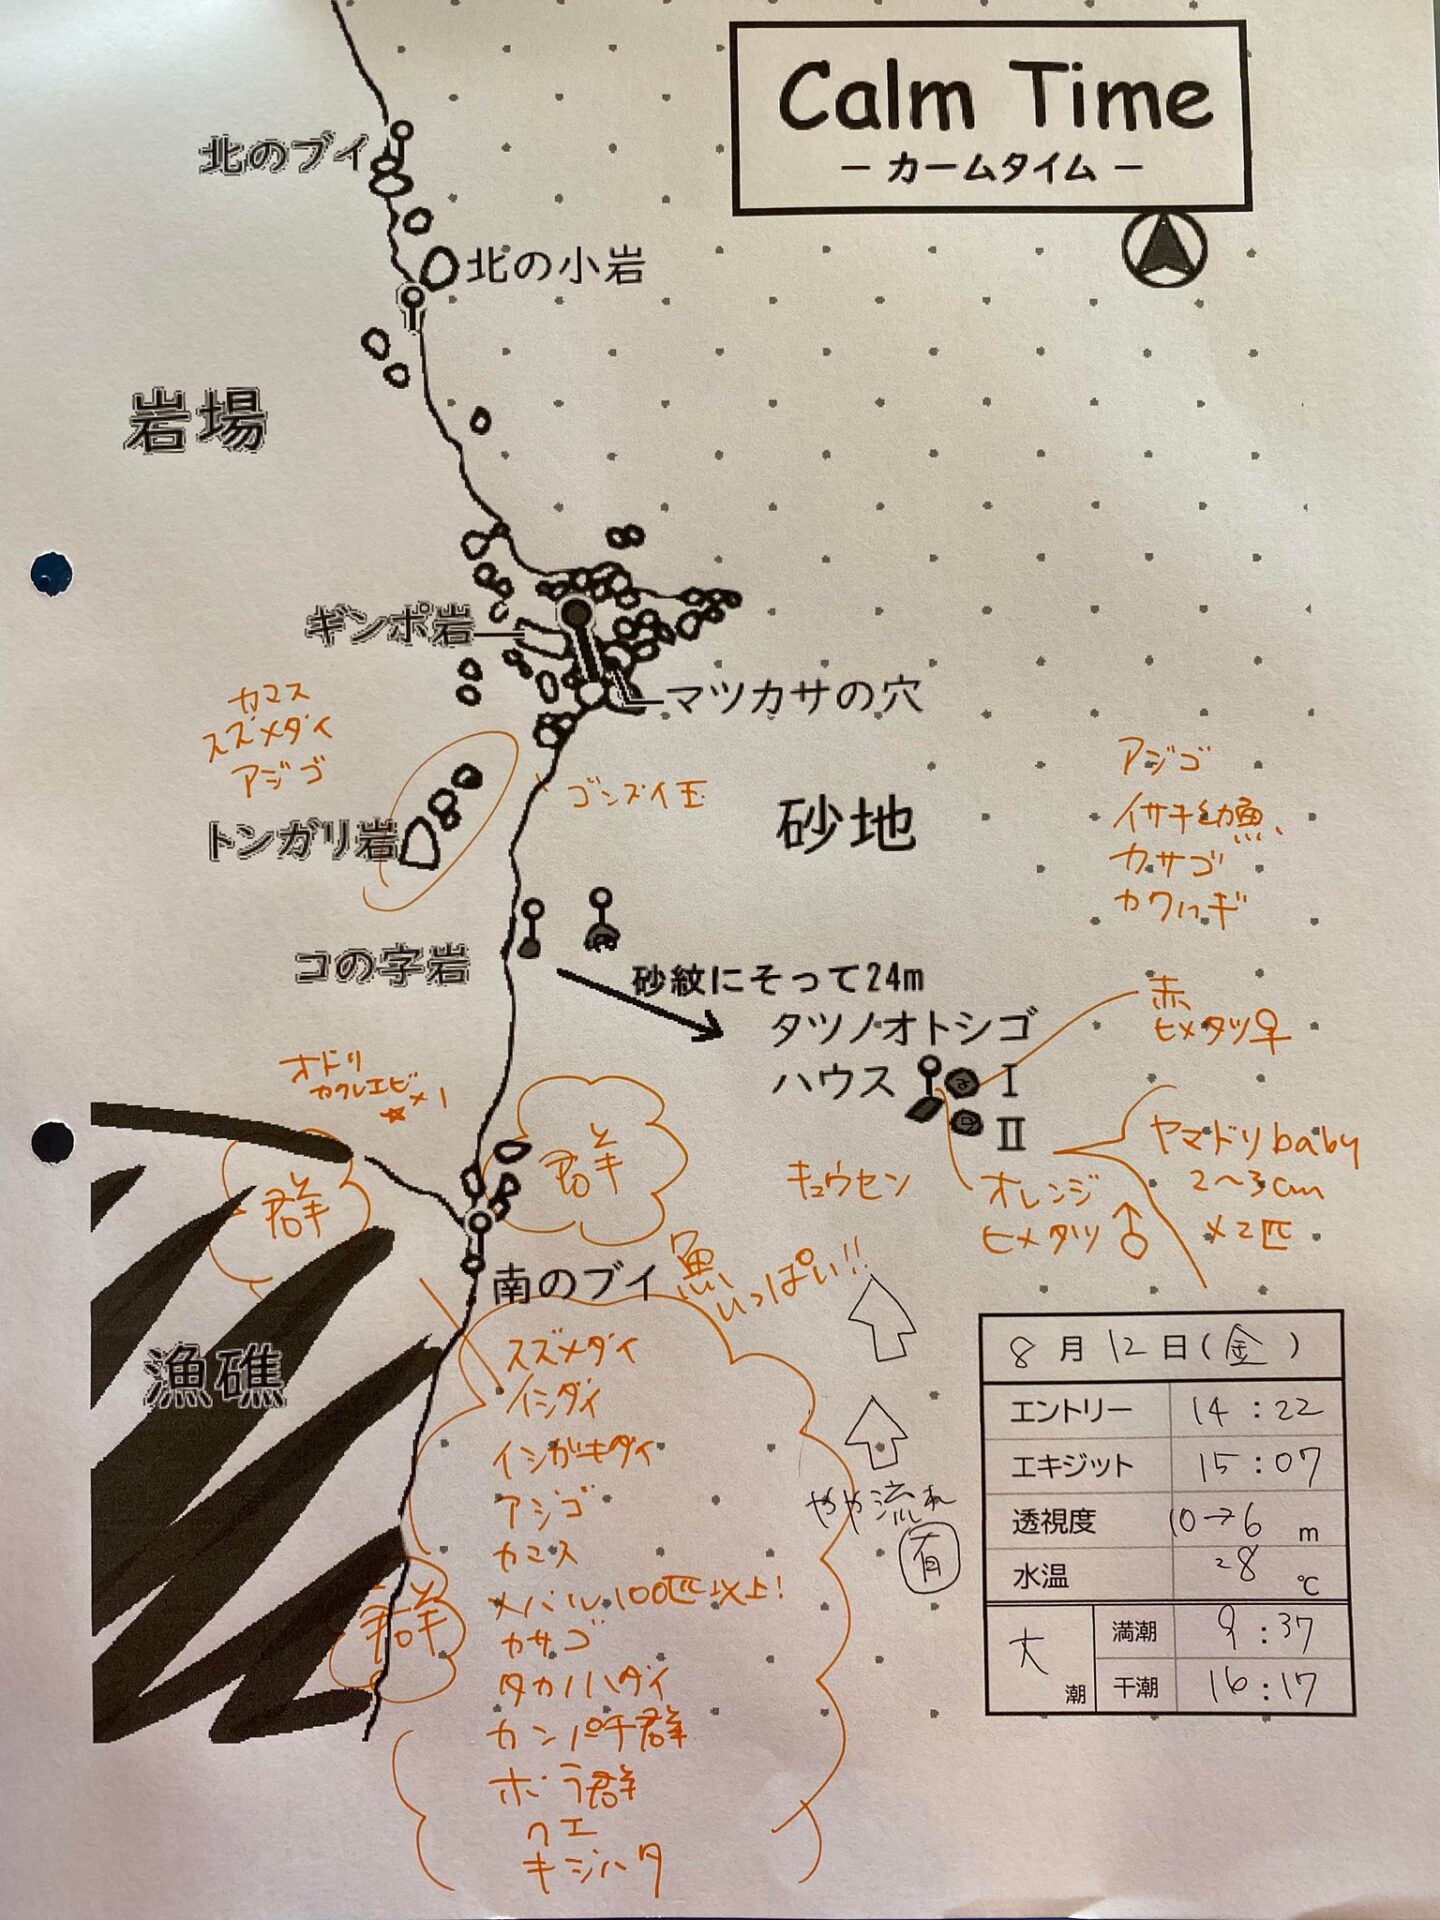 Calm Time
－ カームタイム －
北のブイ
北の小岩
岩場
ギンポ岩
マツカサの穴
カマス
スズメダイ
アジゴ
トンガリ岩
ゴンズイ玉
砂地
アジゴ
イサキ幼魚
カサゴ
カワハギ
コの字岩
砂紋にそって24m
タツノオトシゴ
ハウス
I
II
赤
ヒメタツ♀
オドリ
カクレエビ
☆×1
群
群
キュウセン
オレンジ
ヒメタツ♂
ヤマドリbaby
2〜3cm
×2匹
南のブイ
魚
いっぱい!!
漁礁
スズメダイ
イシダイ
イシガキダイ
アジゴ
カマス
メバル100匹以上!
カサゴ
タカノハダイ
カンパチ群
ボラ群
クエ
キジハタ
群
やや流れ
有
8月12日(金)
エントリー 14:22
エキジット 15:07
透視度 10→6 m
水温 28 ℃
大潮
満潮 9:37
干潮 16:17